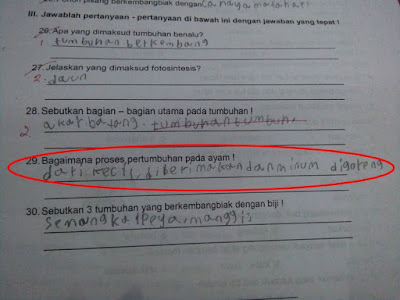 pohon pisang berkembangbiak dengan
III. Jawablah pertanyaan - pertanyaan di bawah ini dengan jawaban yang tepat !
26. Apa yang dimaksud tumbuhan benalu?
1. tumbuhan berkembang
27. Jelaskan yang dimaksud fotosintesis?
2. daun
28. Sebutkan bagian – bagian utama pada tumbuhan !
2 akar batang tumbuhan tumbuh
29. Bagaimana proses pertumbuhan pada ayam !
dari kecil, diberi makan dan minum digoreng
30. Sebutkan 3 tumbuhan yang berkembangbiak dengan biji !
semangka, pepaya, manggis